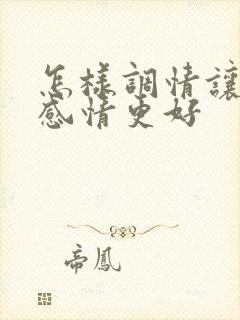 怎樣調情讓
感情更好
帝鳳